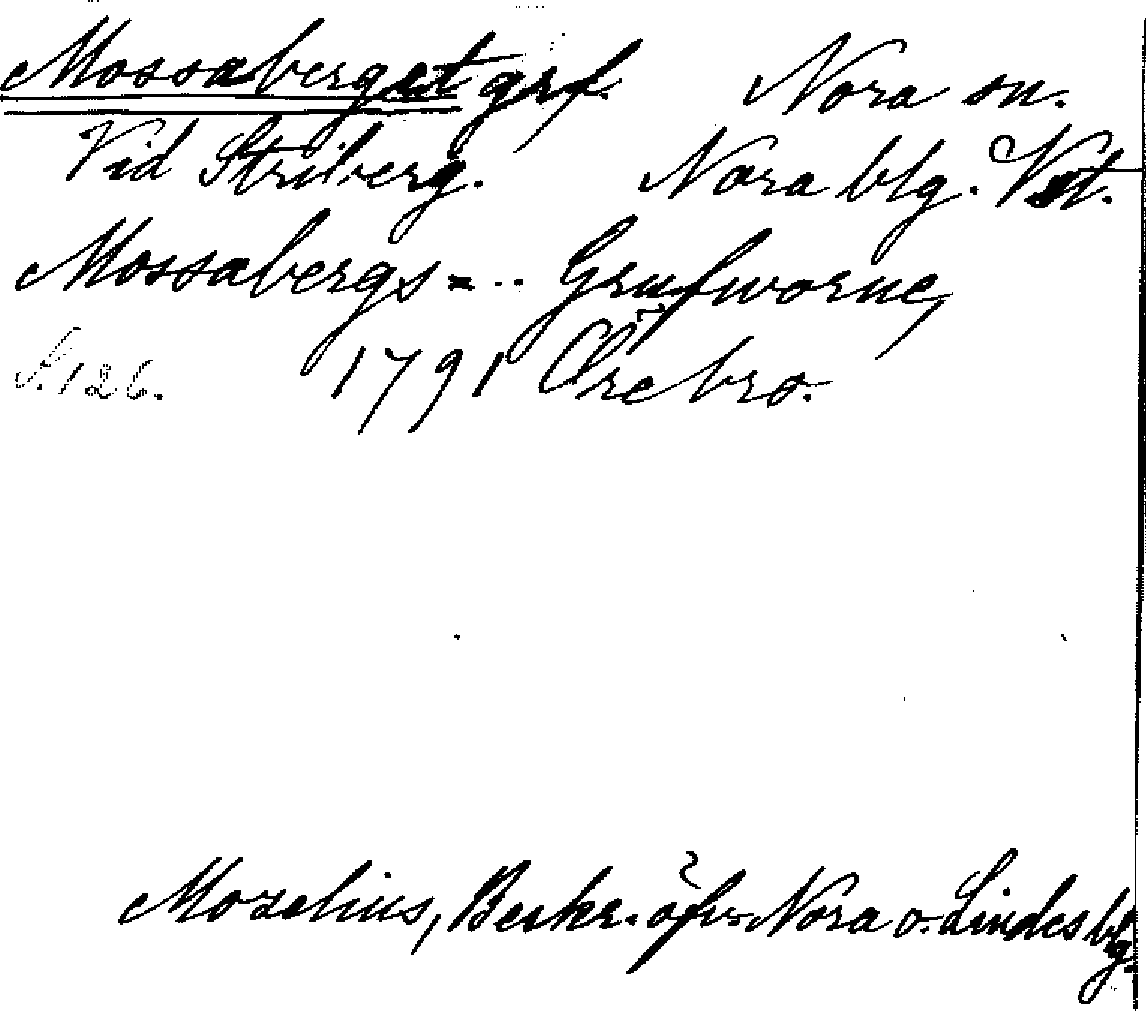 Mossaberget grf. Nora sn.
Vid Striberg. Nora blg. Vst.
Mossabergs=.. Grufworne,
S. 126. 1791 Örebro.
Mozelius, Beskr. öfv. Nora o. Lindes blg.